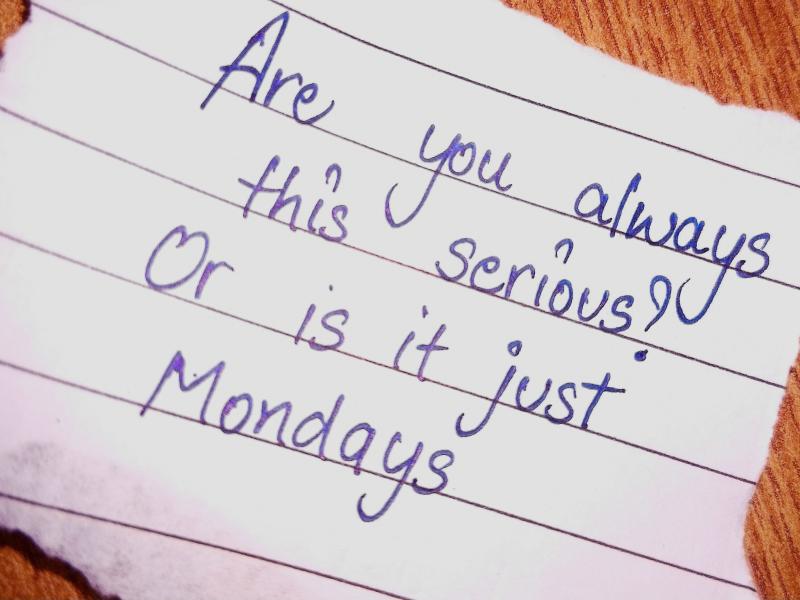 Are you always
this serious?
Or is it just
Mondays